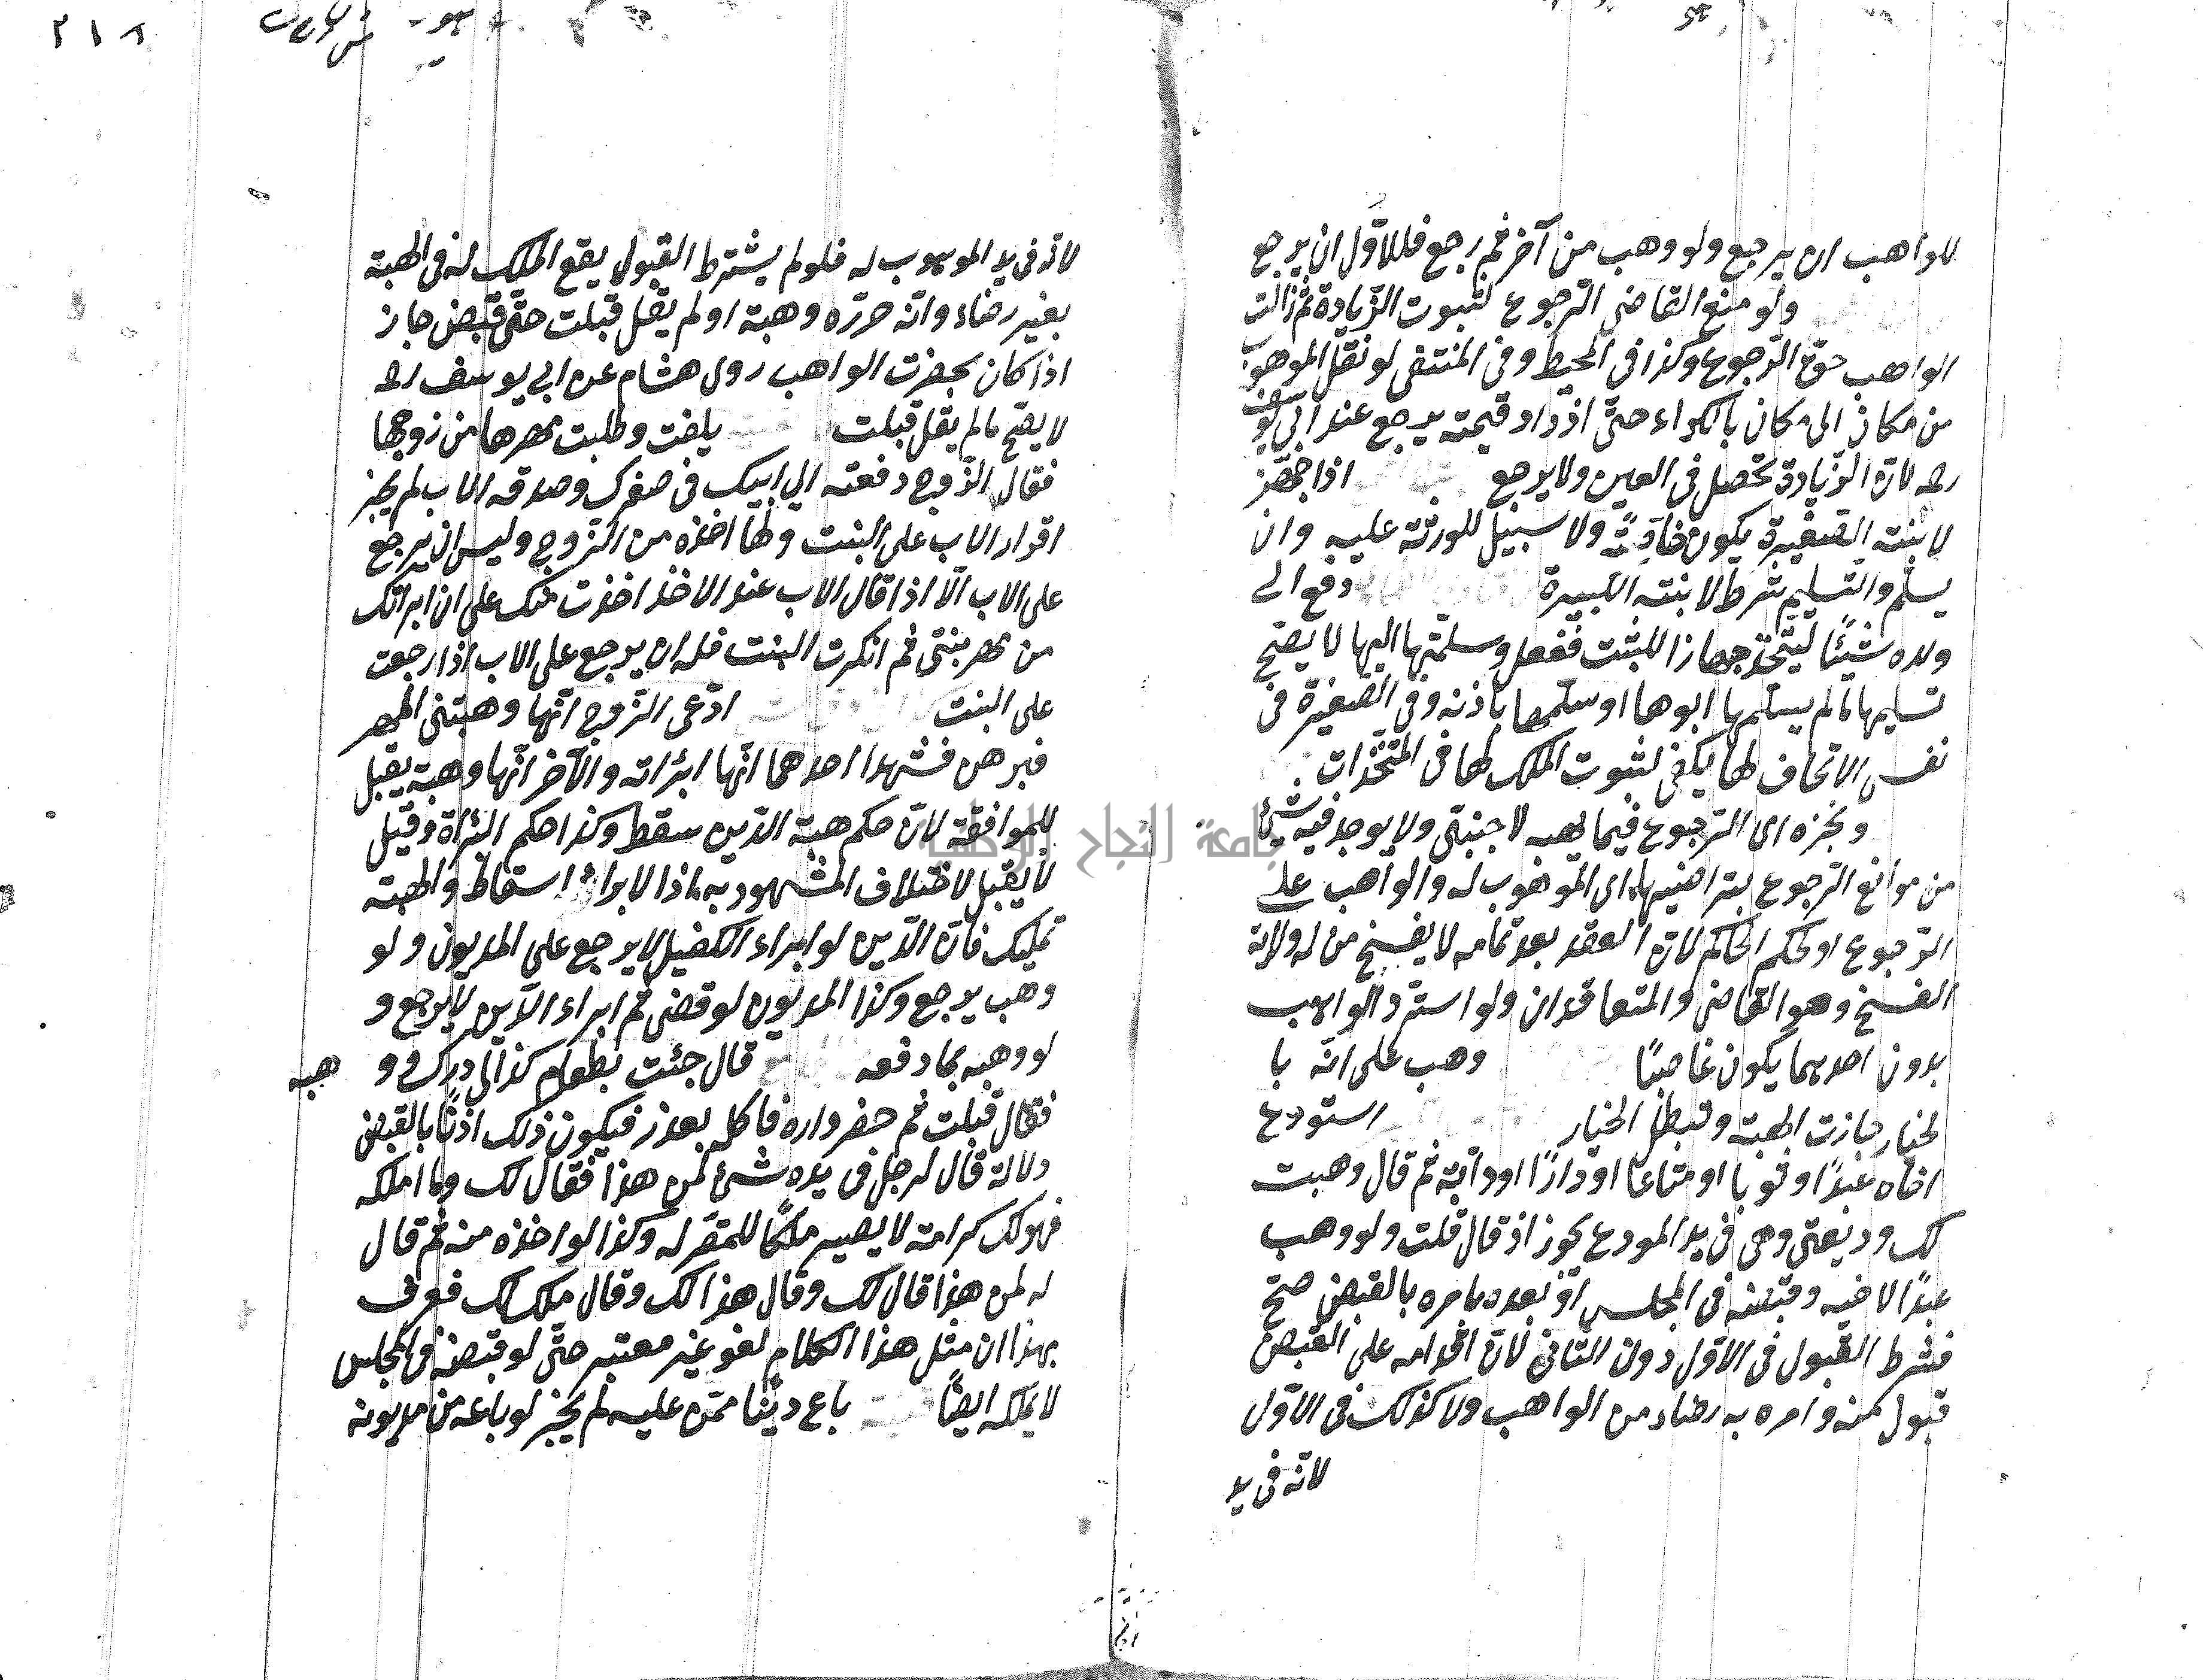 للواهب ان يرجع ولو وهب من آخر ثم رجع فللاوّل ان يرجع
ولو منع القاضى الرّجوع لثبوت الزّيادة ثم زالت
الواهب حق الرّجوع وكذا فى المحيط وفى المنتقى لو نقل الموهوب
من مكان الى مكان بالكراء حتى ازداد قيمته يرجع عند ابى يوسف
رحمه لان الزّيادة تحصل فى العين ولا يرجع اذا جهّز
لابنته الصّغيرة يكون ولا سبيل للورثة عليه وان
يسلم والتسليم شرط لابنته الكبيرة دفع الى
ولده شيئًا ليتّخذ جهازا للبنت ففعل وسلّمتها اليها لا يصحّ
تسليمها ما لم يسلمها ابوها او سلمها باذنه وفى الصّغيرة فى
نفس الاتحاف لها يكفى لثبوت الملك لها فى المتّخذات
ونجزه اى الرّجوع فيما يهبه لاجنبىّ ولا يوجد فيه شئ
من موانع الرّجوع بتراضيهما اى الموهوب له والواهب على
الرّجوع او بحكم الحاكم لان العقد بعد تمامه لا يفسخ من له ولاية
الفسخ وهو القاضى والمتعاقدان ولو استردّ الواهب
بدون احدهما يكون غاصبًا وهب على انّه با
لخيار جازت الهبة وتبطل الخيار استودع
اخاه عبدًا او ثوبا او متاعا او دارًا او دابّة ثم قال وهبت
لك وديعتى وهى فى يد المودع يجوز اذ قال قلت ولو وهب
عبدًا لاخيه وقبضه فى المجلس او بعده بامره بالقبض صحّ
فشرط القبول فى الاوّل دون الثانى لان اقدامه على القبض
قبول منه وامره به رضاء من الواهب ولا كذلك فى الاوّل
لانه فى يد
٢١٨
لانه فى يد الموهوب له فلو لم يشترط القبول يقع الملك له فى الهبة
بغير رضاه وانّه حرره وهبة او لم يقل قبلت حتّى قبض جاز
اذا كان بحضرت الواهب روى هشام عن ابى يوسف رحمه
لا يصحّ ما لم يقل قبلت بلغت وطلبت مهرها من زوجها
فقال الزّوج دفعته الى ابيك فى صغرك وصدقه الاب لم يجز
اقرار الاب على البنت ولها اخذه من الزّوج وليس ان يرجع
على الاب الّا اذا قال الاب عند الاخذ اخذت منك على ان ابرأتك
من مهر بنتى ثم انكرت البنت فله ان يرجع على الاب اذا رجعت
على البنت ادّعى الزّوج انّها وهبتنى المهر
فبرهن فشهدا احدهما انّها ابرئاته والآخر انّها وهبة يقبل
للموافقة لان حكم هبة الدّين سقط وكذا حكم البرأة وقيل
لا يقبل لاختلاف المشهود به اذا الابراء اسقاط والهبة
تمليك فان الدّين لو ابراء الكفيل لا يرجع على المديون ولو
وهب يرجع وكذا المديون لو قضى ثم ابراء الدّين لا يرجع و
لو وهبه بما دفعه قال جئت بطعام كذا الى درك و هبه
فقال قبلت ثم حضر داره فاكله بعذر فيكون ذلك اذنًا بالقبض
دلالة قال لرجل فى يده شئ لمن هذا فقال لك وما املكه
فهو لك كرامة لا يصير ملكًا للمقرّ له وكذا لو اخذه منه ثم قال
له لمن هذا قال لك وقال هذا لك وقال ملك لك فعرف
بهذا ان مثل هذا الكلام لغو غير معتبر حتّى لو قبضه فى المجلس
لا يملكه ايضًا باع دينا ممن عليه لم يجز لو باعه من مديونه
جامعة النجاح الوطنية